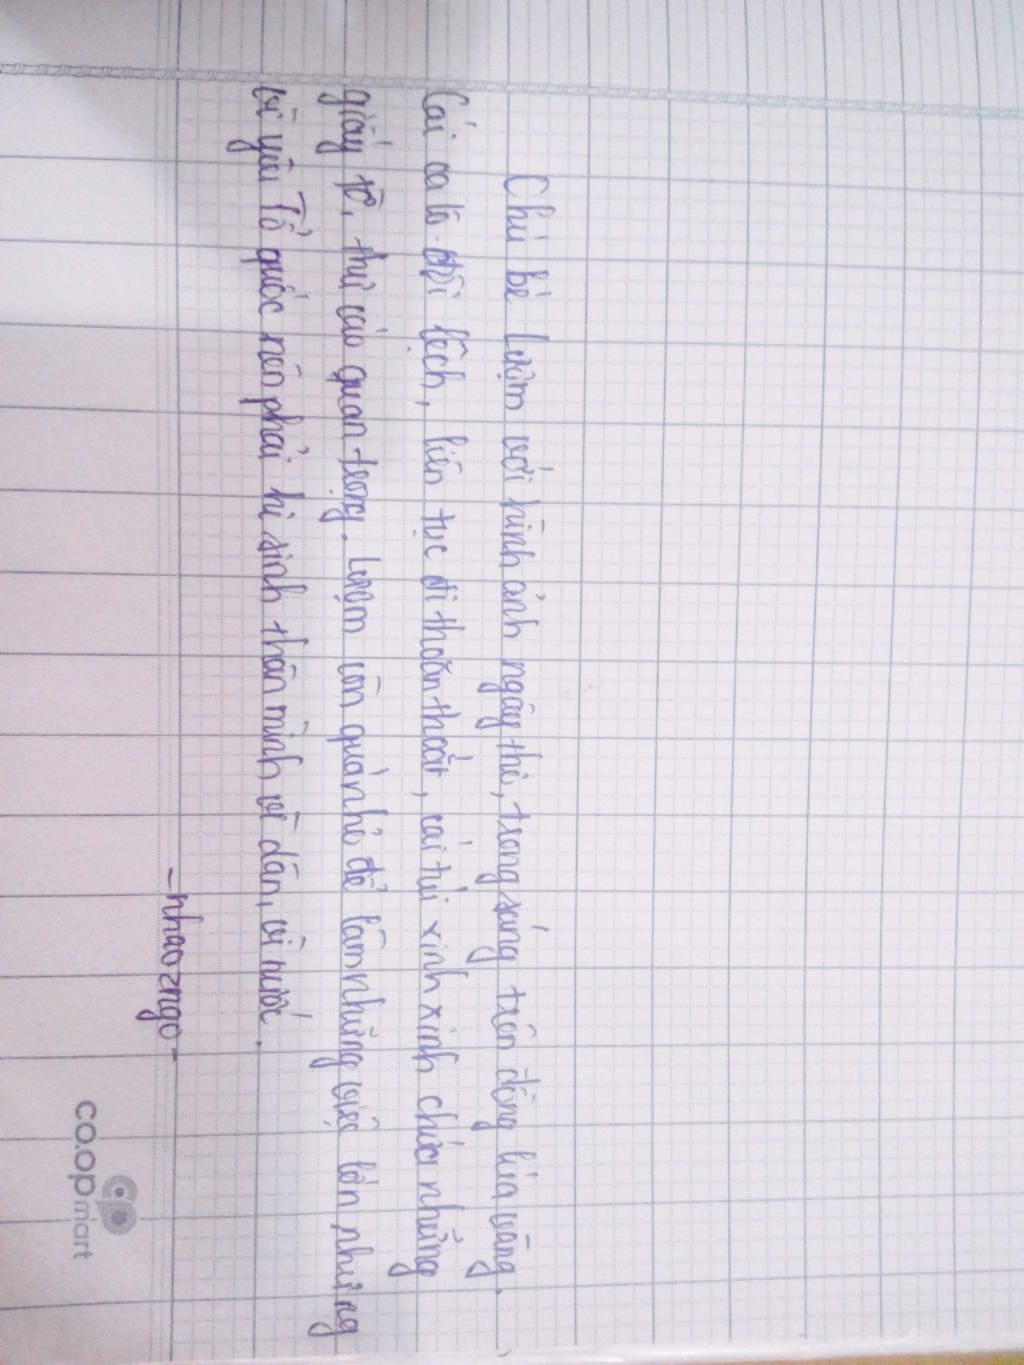 Chú bé Lượm với hình ảnh ngây thơ, trong sáng trên đồng lúa vàng.
Cái ca lô đội lệch, liên tục đi thoăn thoắt, cái túi xinh xinh chứa những
giấy tờ, thư báo quan trọng. Lượm còn quá nhỏ để làm những việc lớn nhưng
vì yêu Tổ quốc nên phải hi sinh thân mình vì dân, vì nước.
-nhaozngo-
co.opmart